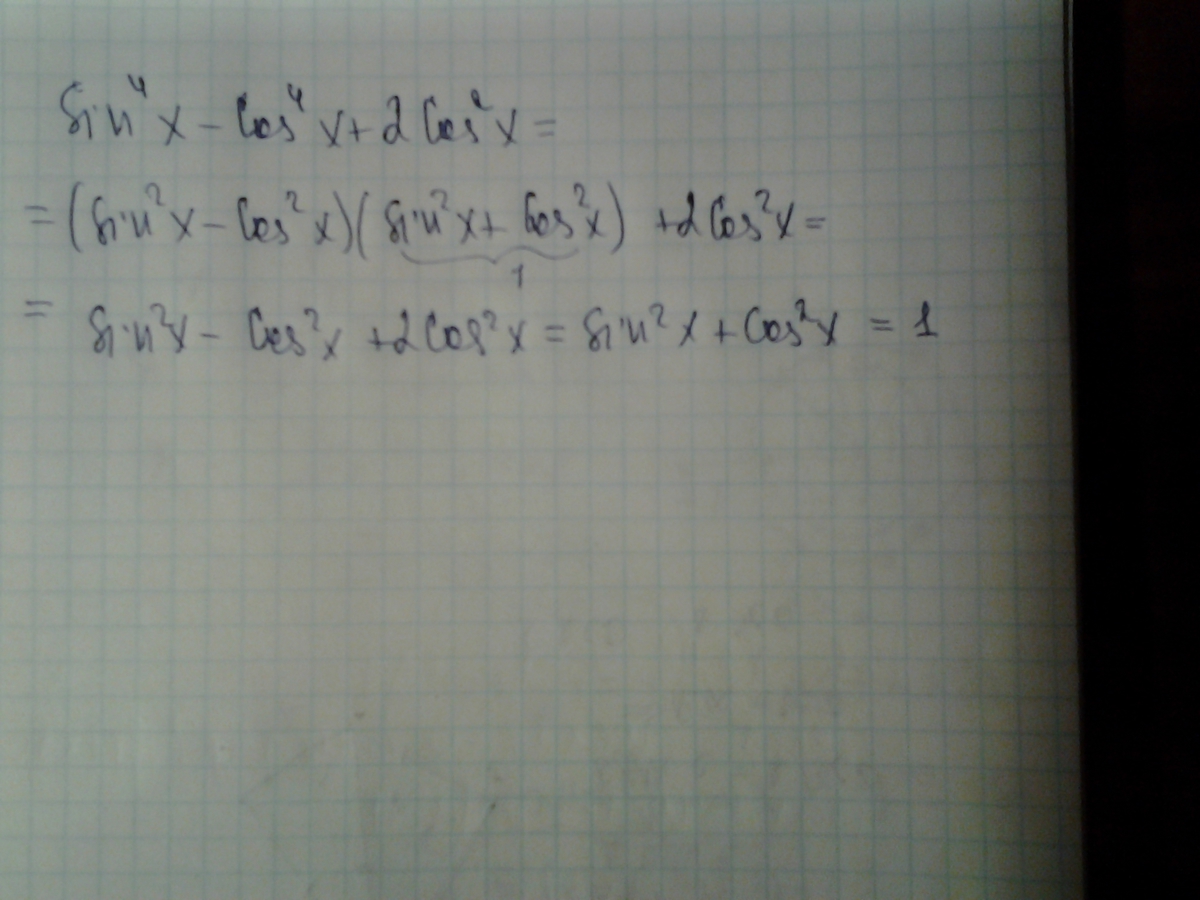 Sin⁴x - Cos⁴x + 2Cos²x =
= (Sin²x - Cos²x)(Sin²x + Cos²x) + 2Cos²x =
1
= Sin²x - Cos²x + 2Cos²x = Sin²x + Cos²x = 1